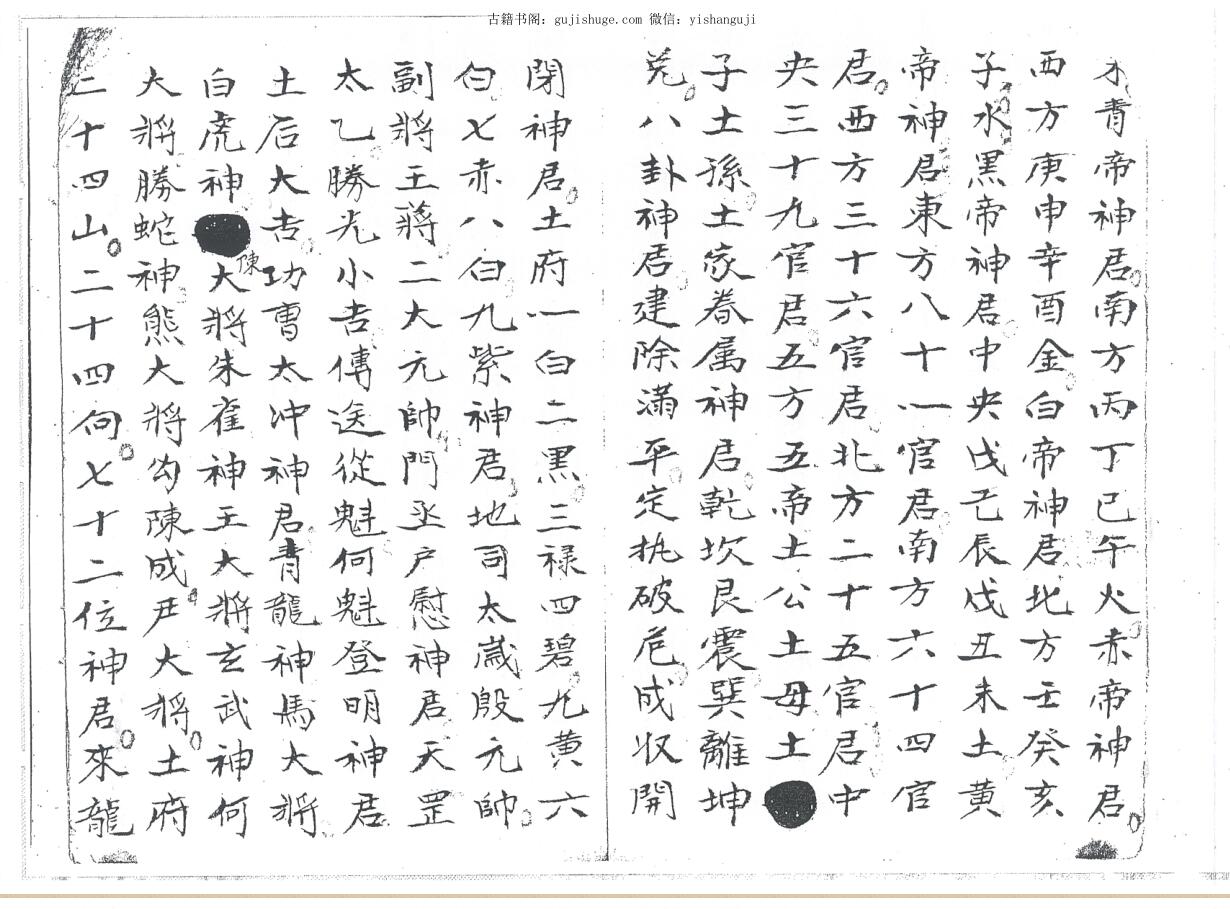 古籍书阁：gujishuge.com 微信：yishanguji
木青帝神君南方丙丁巳午火赤帝神君
西方庚申辛酉金白帝神君北方壬癸亥
子水黑帝神君中央戊己辰戌丑未土黄
帝神君東方八十一官君南方六十四官
君西方三十六官君北方二十五官君中
央三十九官君五方五帝土公土母土
子土孫土家眷属神君乾坎艮震巽離坤
兌八卦神君建除滿平定执破危成収開
閉神君土府一白二黑三禄四碧九黄六
白七赤八白九紫神君地司太歲殷元帥
副將王蔣二大元帥門丞户慰神君天罡
太乙勝光小吉傳送從魁何魁登明神君
土后大吉功曹太冲神君青龍神馬大將
白虎神陳大將朱雀神王大將玄武神何
大將勝蛇神熊大將勾陳成尹大將土府
二十四山二十四向七十二位神君來龍